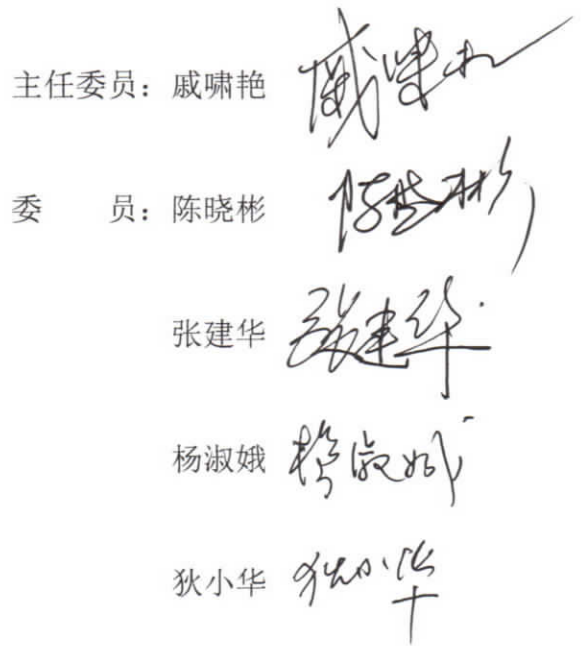 主任委员：戚啸艳 戚啸艳
委　　员：陈晓彬 陈晓彬
张建华 张建华
杨淑娥 杨淑娥
狄小华 狄小华